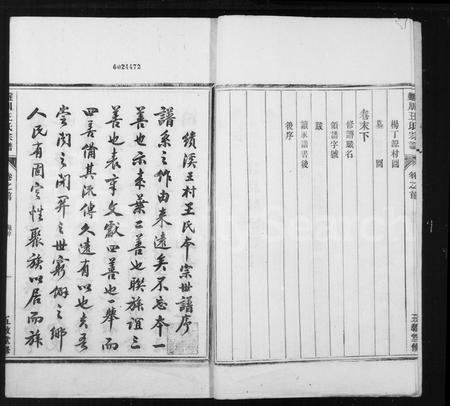 6024472
楊丁源村圖
墓圖
卷末下
修譜職名
領譜字號
跋
讀家譜書後
後序
卷之首
績溪王村王氏本宗世譜序
譜系之作由來遠矣不忘本一
善也示來葉二善也聯族誼三
善也表章文獻四善也一舉而
四善備其流傳久遠有以也夫吾
嘗閱之開闢之世窮僻之鄉
人民有固定性聚族以居而族
卷之首